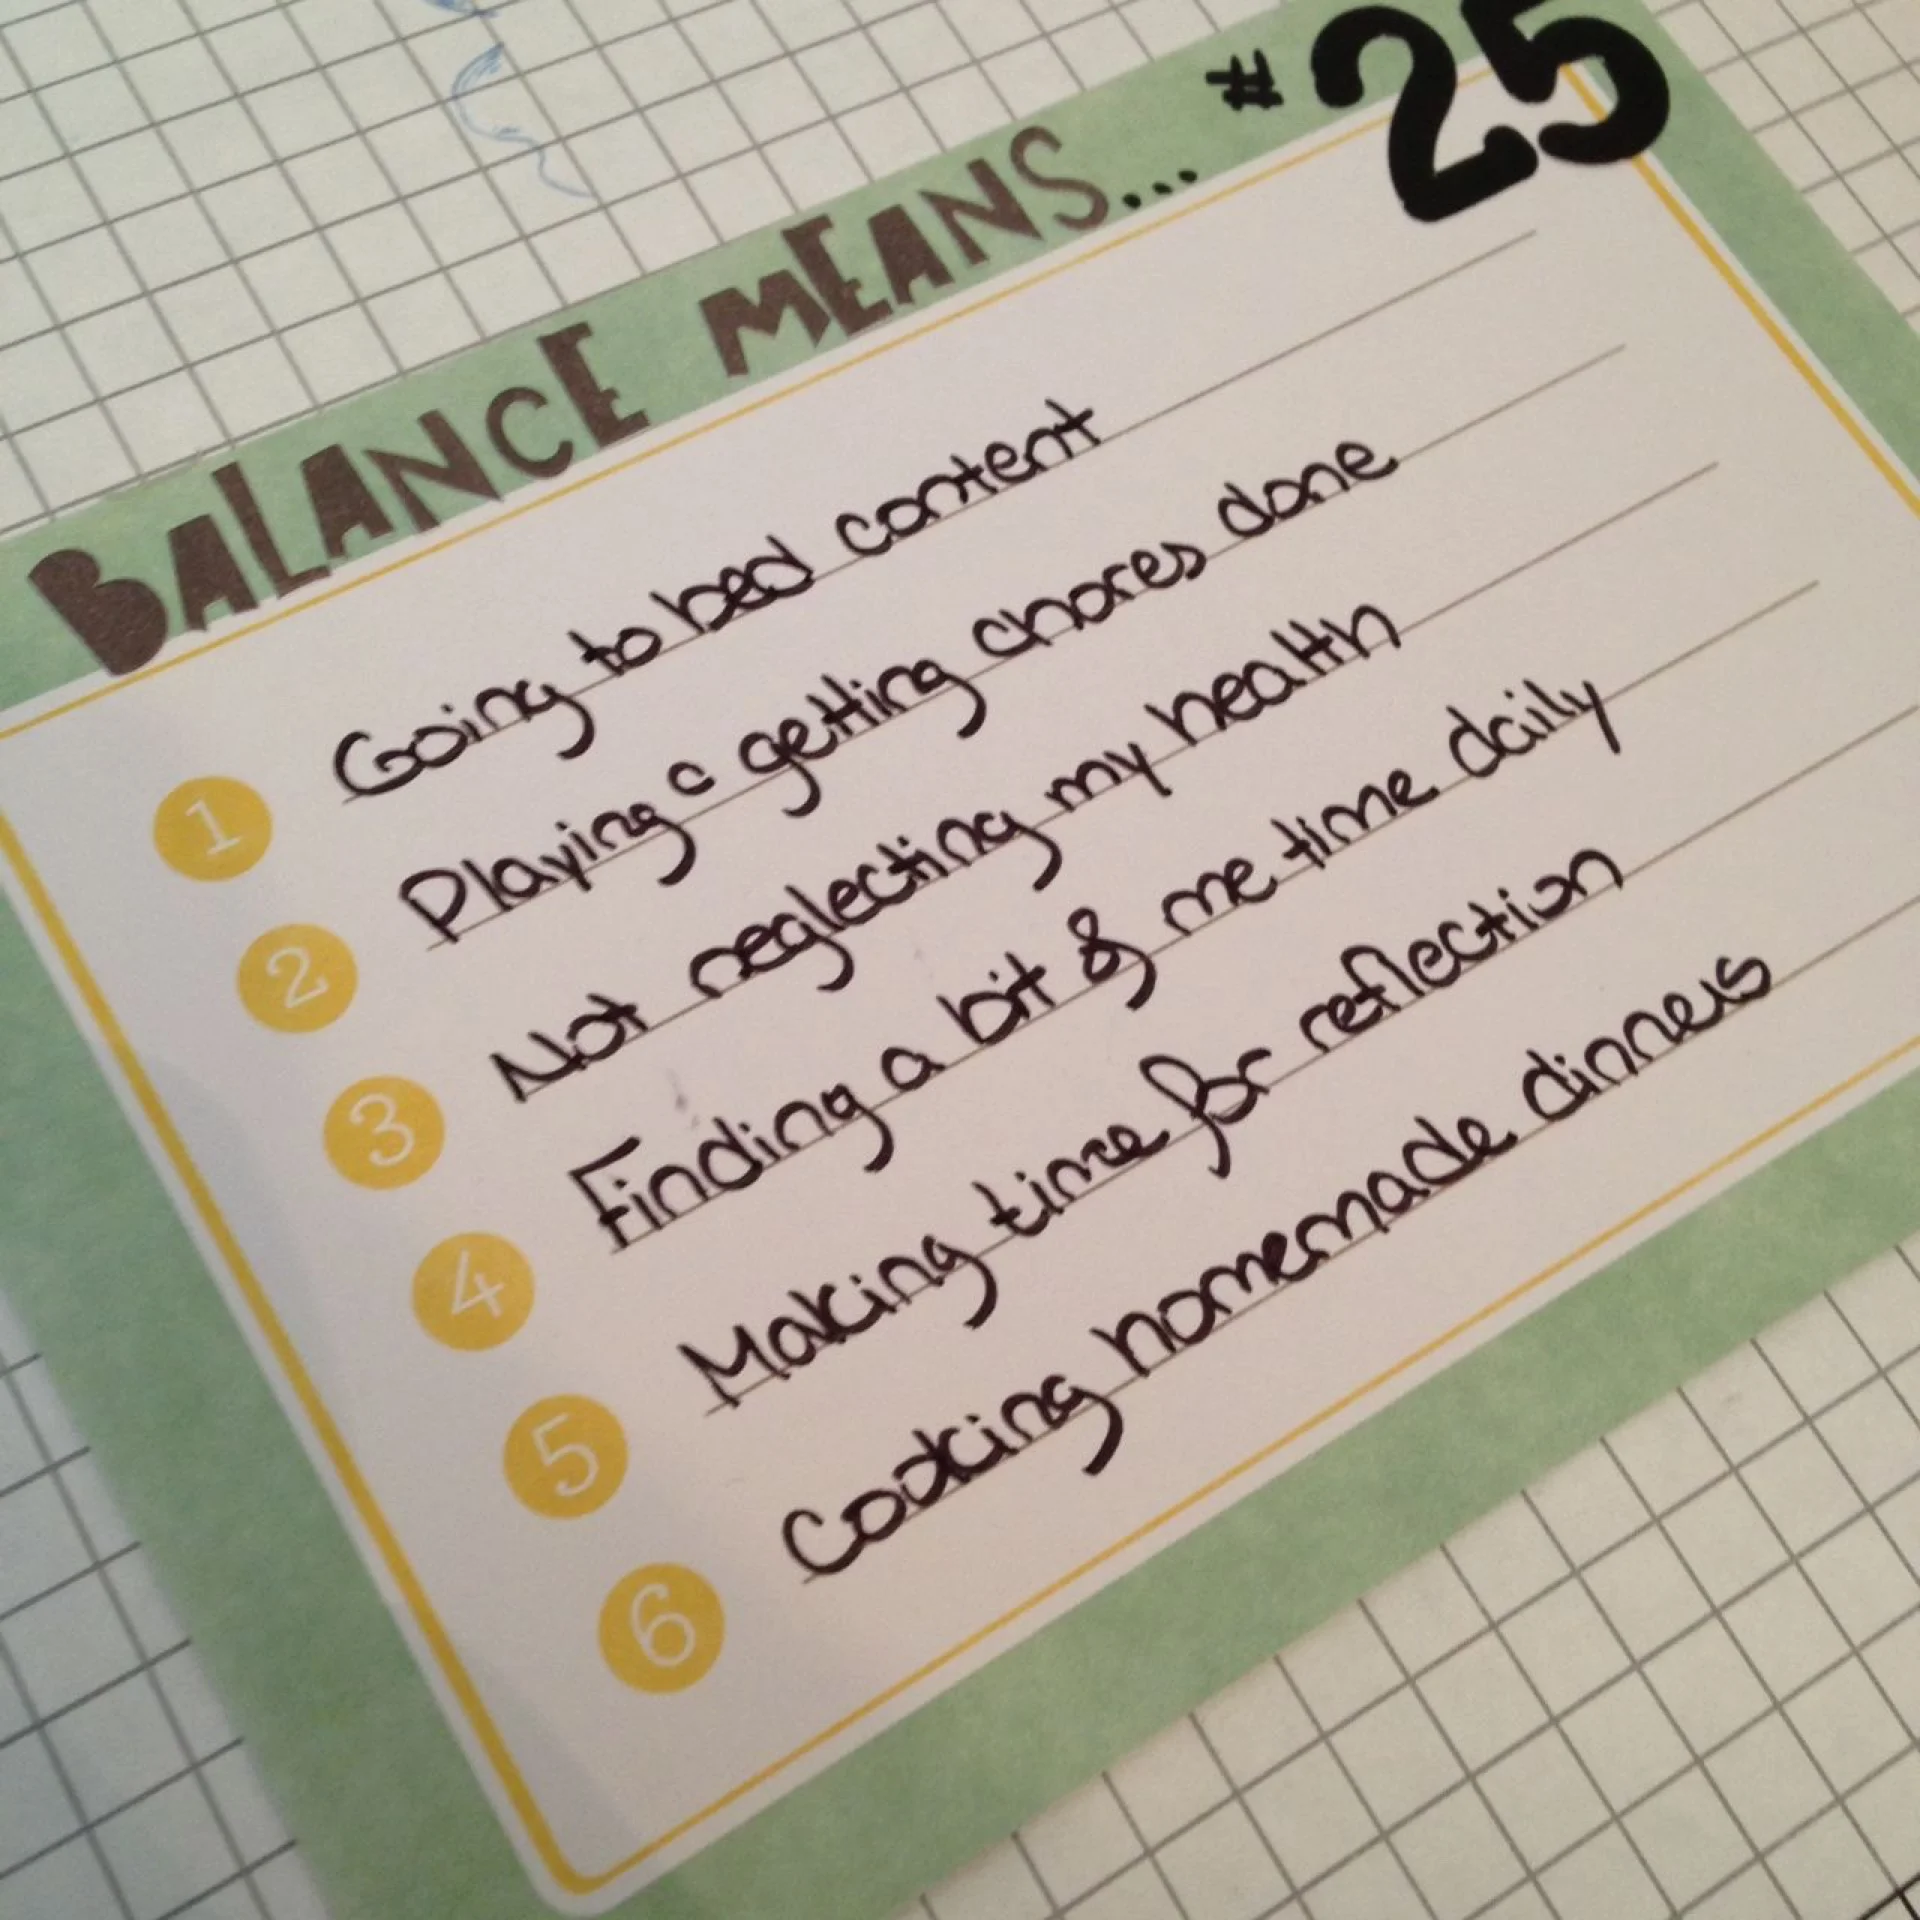 BALANCE MEANS... #25
1 Going to bed content
2 Playing c getting chores done
3 Not neglecting my health
4 Finding a bit of me time daily
5 Making time for reflection
6 Cooking homemade dinners